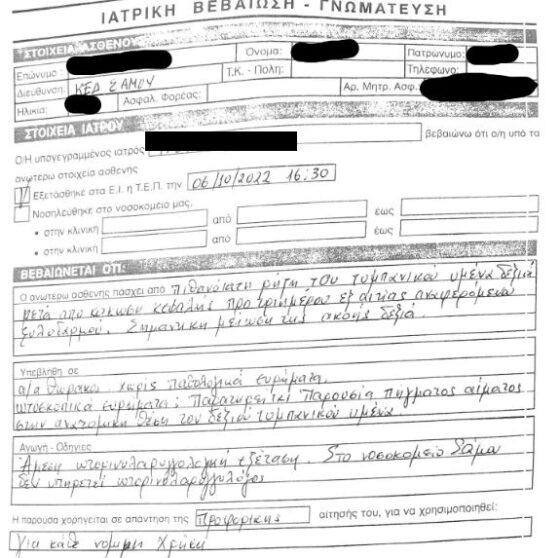 ΙΑΤΡΙΚΗ ΒΕΒΑΙΩΣΗ - ΓΝΩΜΑΤΕΥΣΗ
ΣΤΟΙΧΕΙΑ ΑΣΘΕΝΟΥΣ
Επώνυμο : Όνομα: Πατρώνυμο:
Διεύθυνση: ΚΕΔ ΣΑΜΟΥ Τ.Κ. - Πόλη: Τηλέφωνο:
Ηλικία: Ασφαλ. Φορέας: Αρ. Μητρ. Ασφ.
ΣΤΟΙΧΕΙΑ ΙΑΤΡΟΥ
Ο/Η υπογεγραμμένος ιατρός βεβαιώνω ότι ο/η υπό τα
ανωτέρω στοιχεία ασθενής
Εξετάσθηκε στα Ε.Ι. ή Τ.Ε.Π. την 06/10/2022 16:30
Νοσηλεύθηκε στο νοσοκομείο μας,
• στην κλινική από έως
• στην κλινική από έως
ΒΕΒΑΙΩΝΕΤΑΙ ΟΤΙ:
Ο ανωτέρω ασθενής πάσχει από πιθανότατη ρήξη του τυμπανικού υμένα δεξιά
μετά από κάκωση κεφαλής προ τριημέρου εξ αιτίας αναφερόμενου
ξυλοδαρμού. Σημαντική μείωση της ακοής δεξιά.
Υπεβλήθη σε
α/α θώρακος χωρίς παθολογικά ευρήματα
ωτοσκοπικά ευρήματα: Παρατηρείται παρουσία πήγματος αίματος
στην ανατομική θέση του δεξιού τυμπανικού υμένα
Αγωγή - Οδηγίες
Άμεση ωτορινολαρυγγολογική εξέταση. Στο νοσοκομείο Σάμου
δεν υπηρετεί ωτορινολαρυγγολόγος
Η παρούσα χορηγείται σε απάντηση της προφορικής αίτησής του, για να χρησιμοποιηθεί:
Για κάθε νόμιμη χρήση